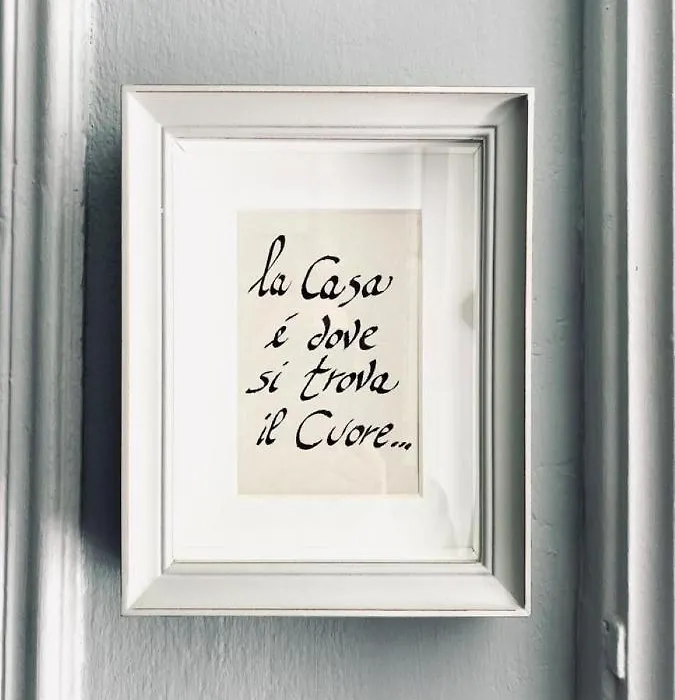 la Casa
é dove
si trova
il Cuore...